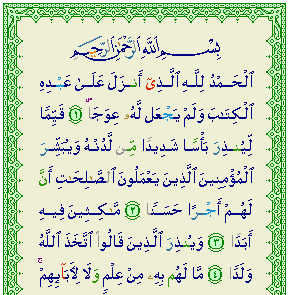 بِسْمِ اللَّهِ الرَّحْمَٰنِ الرَّحِيمِ
الْحَمْدُ لِلَّهِ الَّذِي أَنزَلَ عَلَىٰ عَبْدِهِ
الْكِتَابَ وَلَمْ يَجْعَل لَّهُ عِوَجًا ۜ ١ قَيِّمًا
لِّيُنذِرَ بَأْسًا شَدِيدًا مِّن لَّدُنْهُ وَيُبَشِّرَ
الْمُؤْمِنِينَ الَّذِينَ يَعْمَلُونَ الصَّالِحَاتِ أَنَّ
لَهُمْ أَجْرًا حَسَنًا ٢ مَّاكِثِينَ فِيهِ
أَبَدًا ٣ وَيُنذِرَ الَّذِينَ قَالُوا اتَّخَذَ اللَّهُ
وَلَدًا ٤ مَّا لَهُم بِهِ مِنْ عِلْمٍ وَلَا لِآبَائِهِمْ ۚ